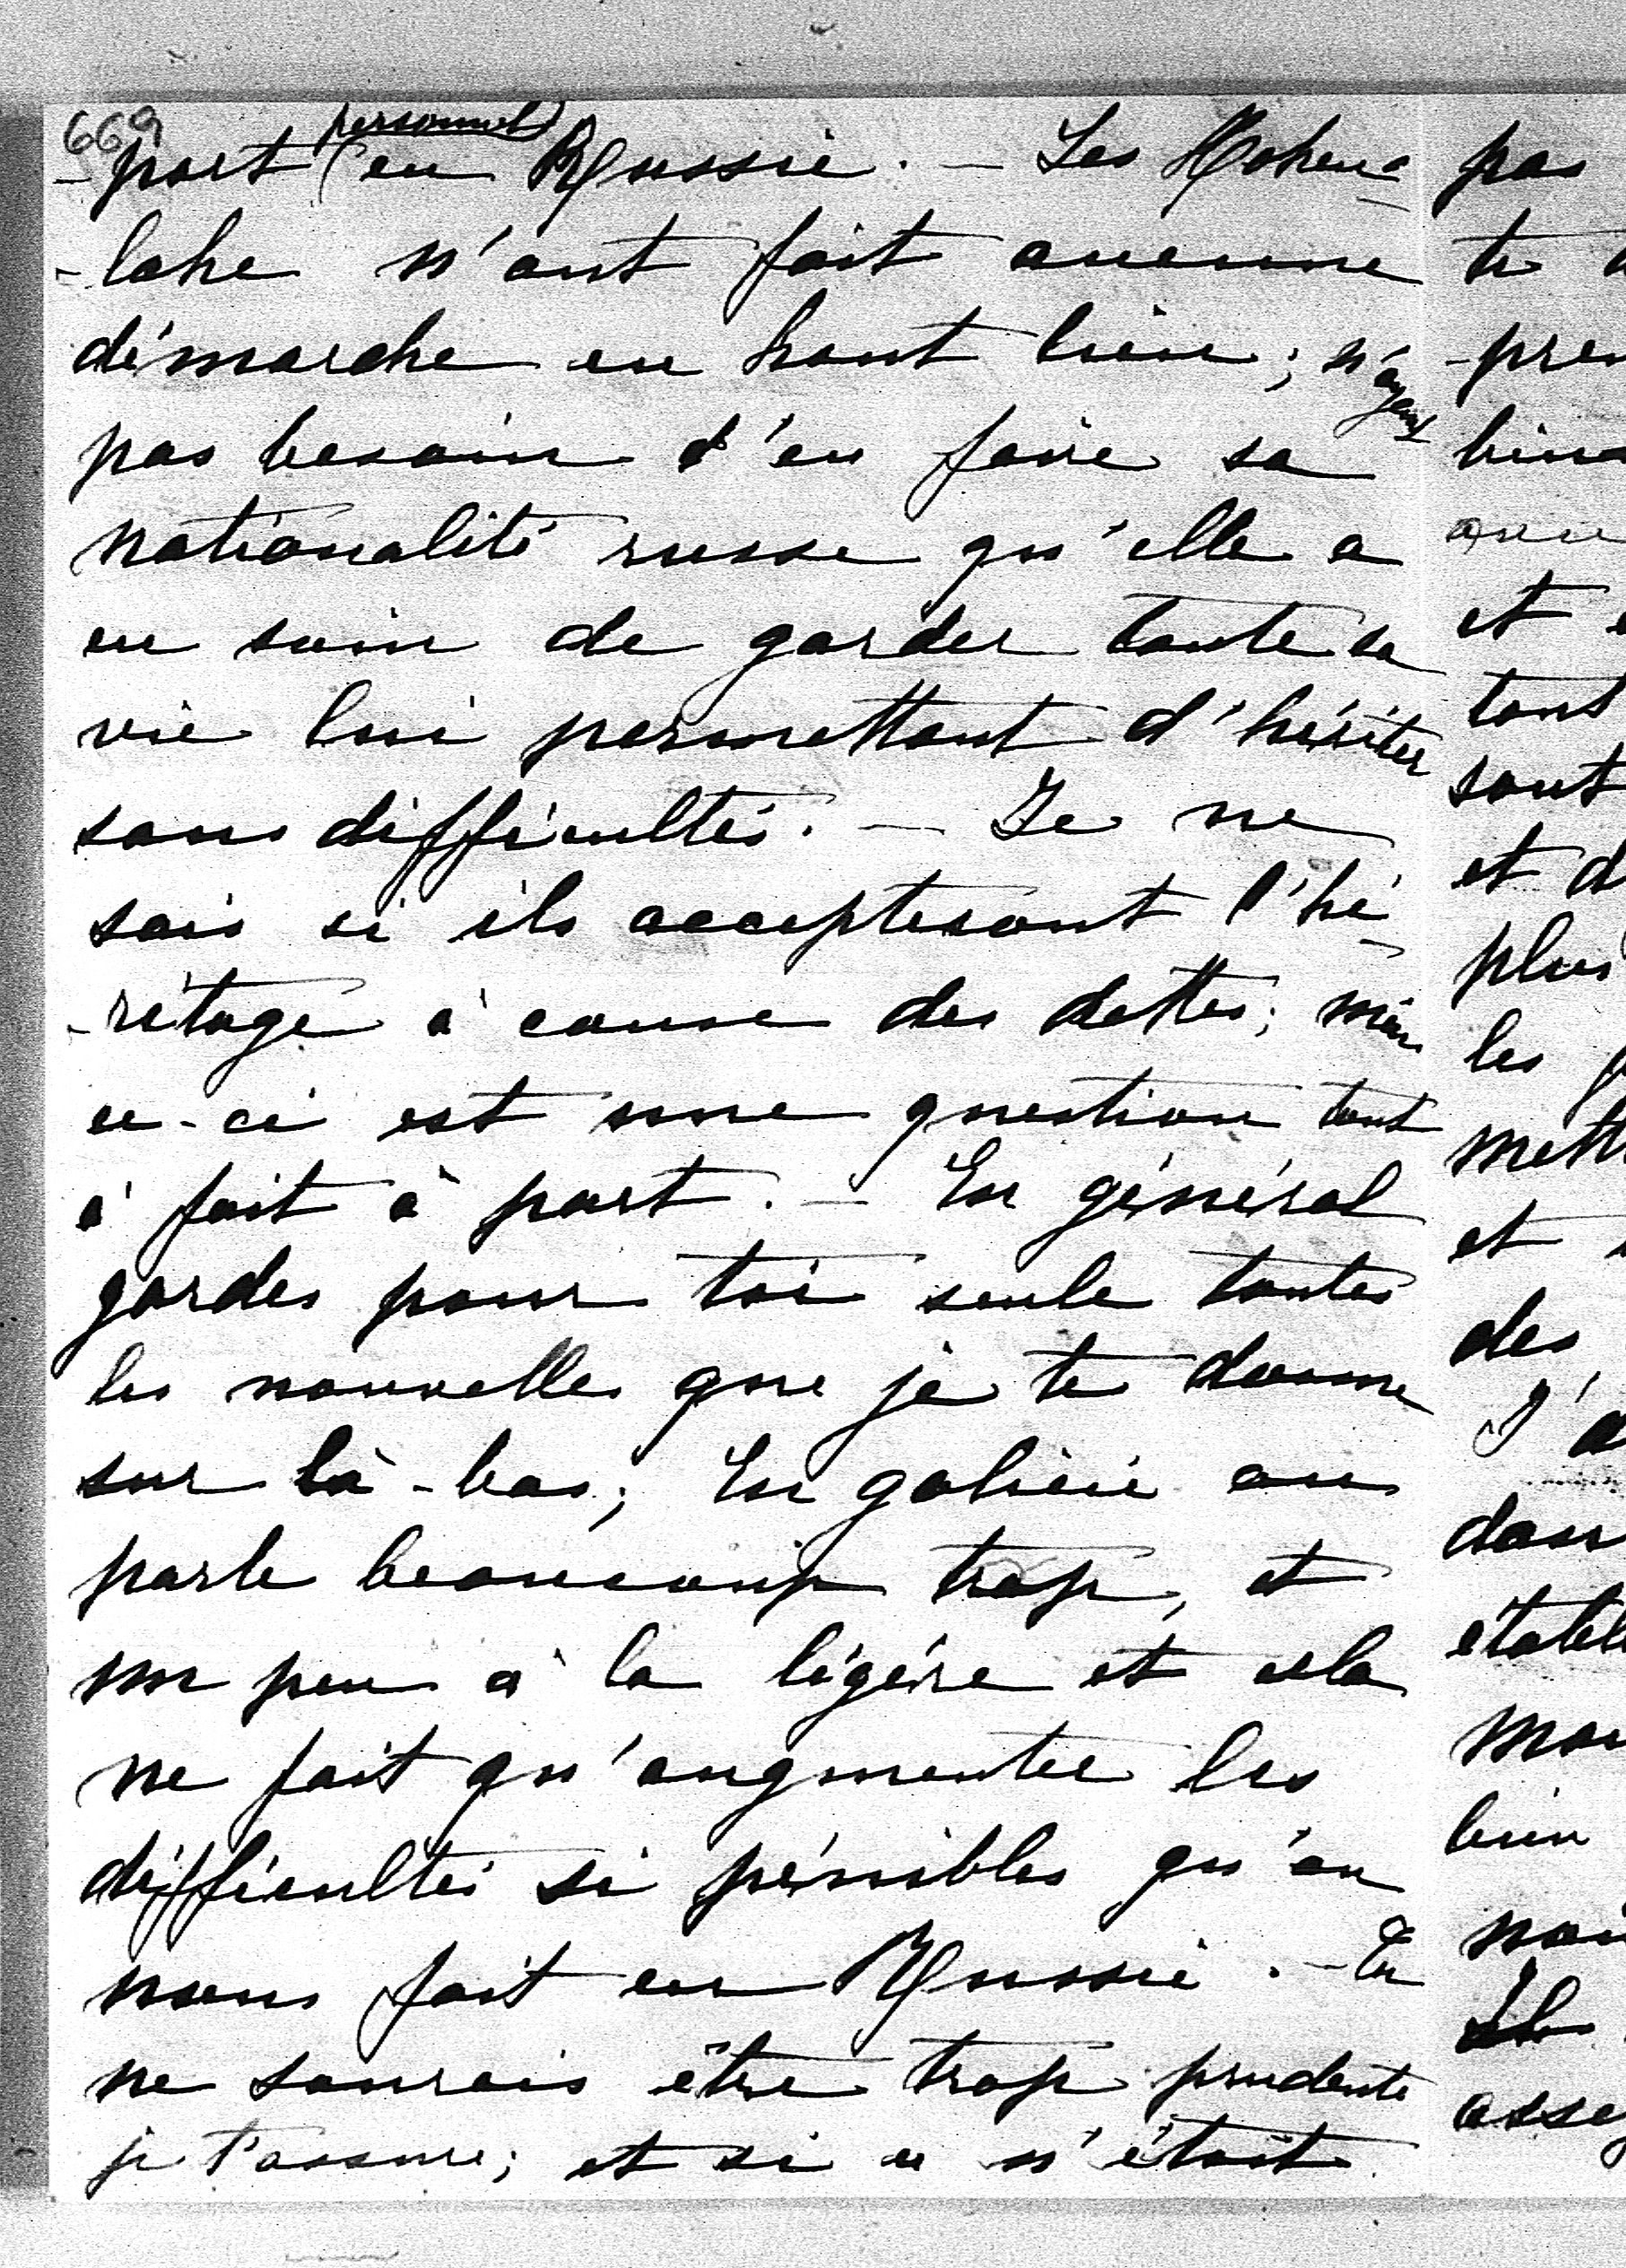 669
personnel
-port en Russie. — Les Hohen-
-lohe n'ont fait aucune
démarche en haut lieu; n'ayant
pas besoin d'en faire sa
nationalité russe qu'elle a
eu soin de garder toute sa
vie lui permettant d'hériter
sans difficultés. — Je ne
sais si ils accepteront l'hé-
-ritage à cause des dettes; mais
ce-ci est une question tout
à fait à part. — En général
gardes pour toi seule toutes
les nouvelles que je te donne
sur là-bas; En galicie on
parle beaucoup trop, et
un peu à la légère et cela
ne fait qu'augmenter les
difficultés si pénibles qu'on
nous fait en Russie. — Tu
ne saurais être trop prudente
je t'assure; et si ce n'était
pas
te
-pren
et
tout
sont
et d
plus
les
mett
et
des
J'a
dans
établi
bien